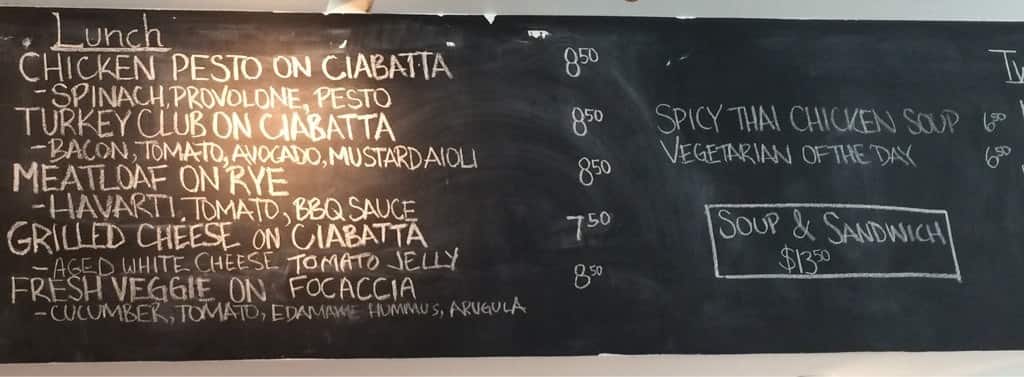 Lunch
CHICKEN PESTO ON CIABATTA 8.50
- SPINACH, PROVOLONE, PESTO
TURKEY CLUB ON CIABATTA 8.50
- BACON, TOMATO, AVOCADO, MUSTARD AIOLI
MEATLOAF ON RYE 8.50
- HAVARTI, TOMATO, BBQ SAUCE
GRILLED CHEESE ON CIABATTA 7.50
- AGED WHITE CHEESE TOMATO JELLY
FRESH VEGGIE ON FOCACCIA 8.50
- CUCUMBER, TOMATO, EDAMAME HUMMUS, ARUGULA
SPICY THAI CHICKEN SOUP 6.50
VEGETARIAN OF THE DAY 6.50
SOUP & SANDWICH
$13.50